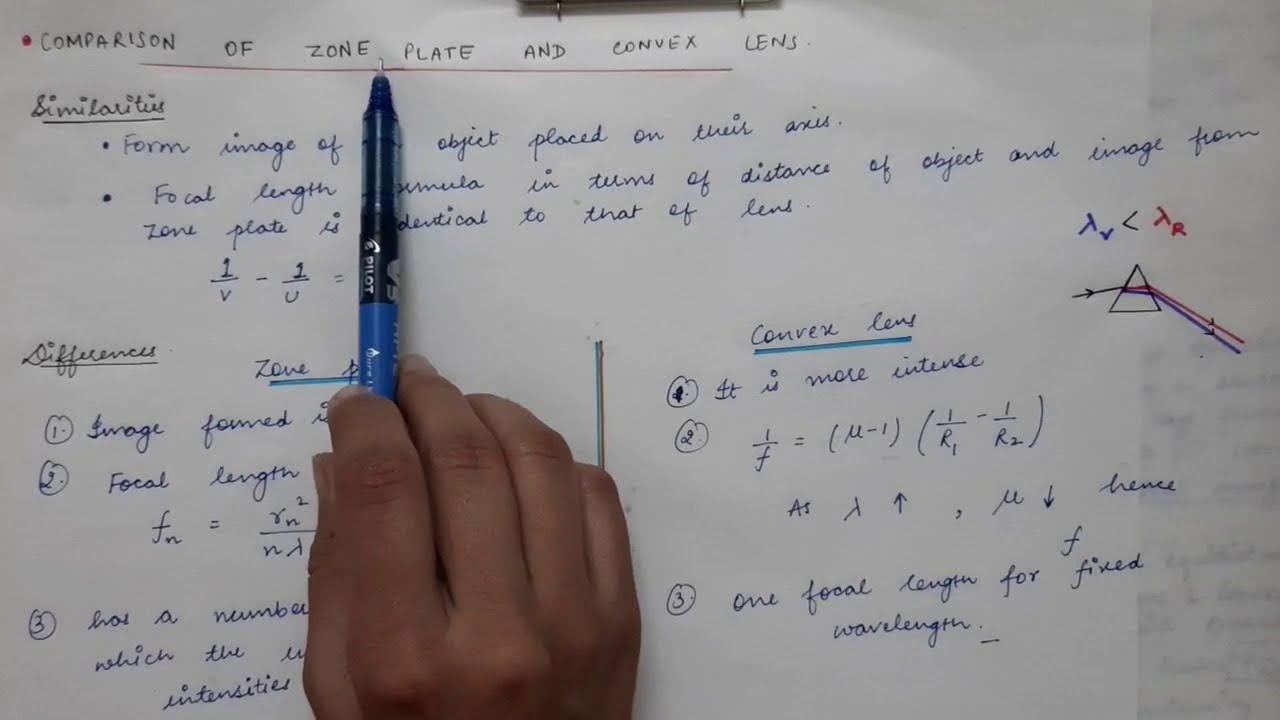 • COMPARISON OF ZONE PLATE AND CONVEX LENS.
Similarities
• Form image of object placed on their axis.
• Focal length in terms of distance of object and image from
zone plate is identical to that of lens.
1/v - 1/u =
λv < λR
PILOT
Differences
Zone
① Image formed is
② Focal length
fn = rn²/nλ
③ has a number
which the
intensities
Convex lens
①. It is more intense
②. 1/f = (μ-1) (1/R1 - 1/R2)
As λ ↑ , μ ↓ hence
f
③. one focal length for fixed
wavelength.